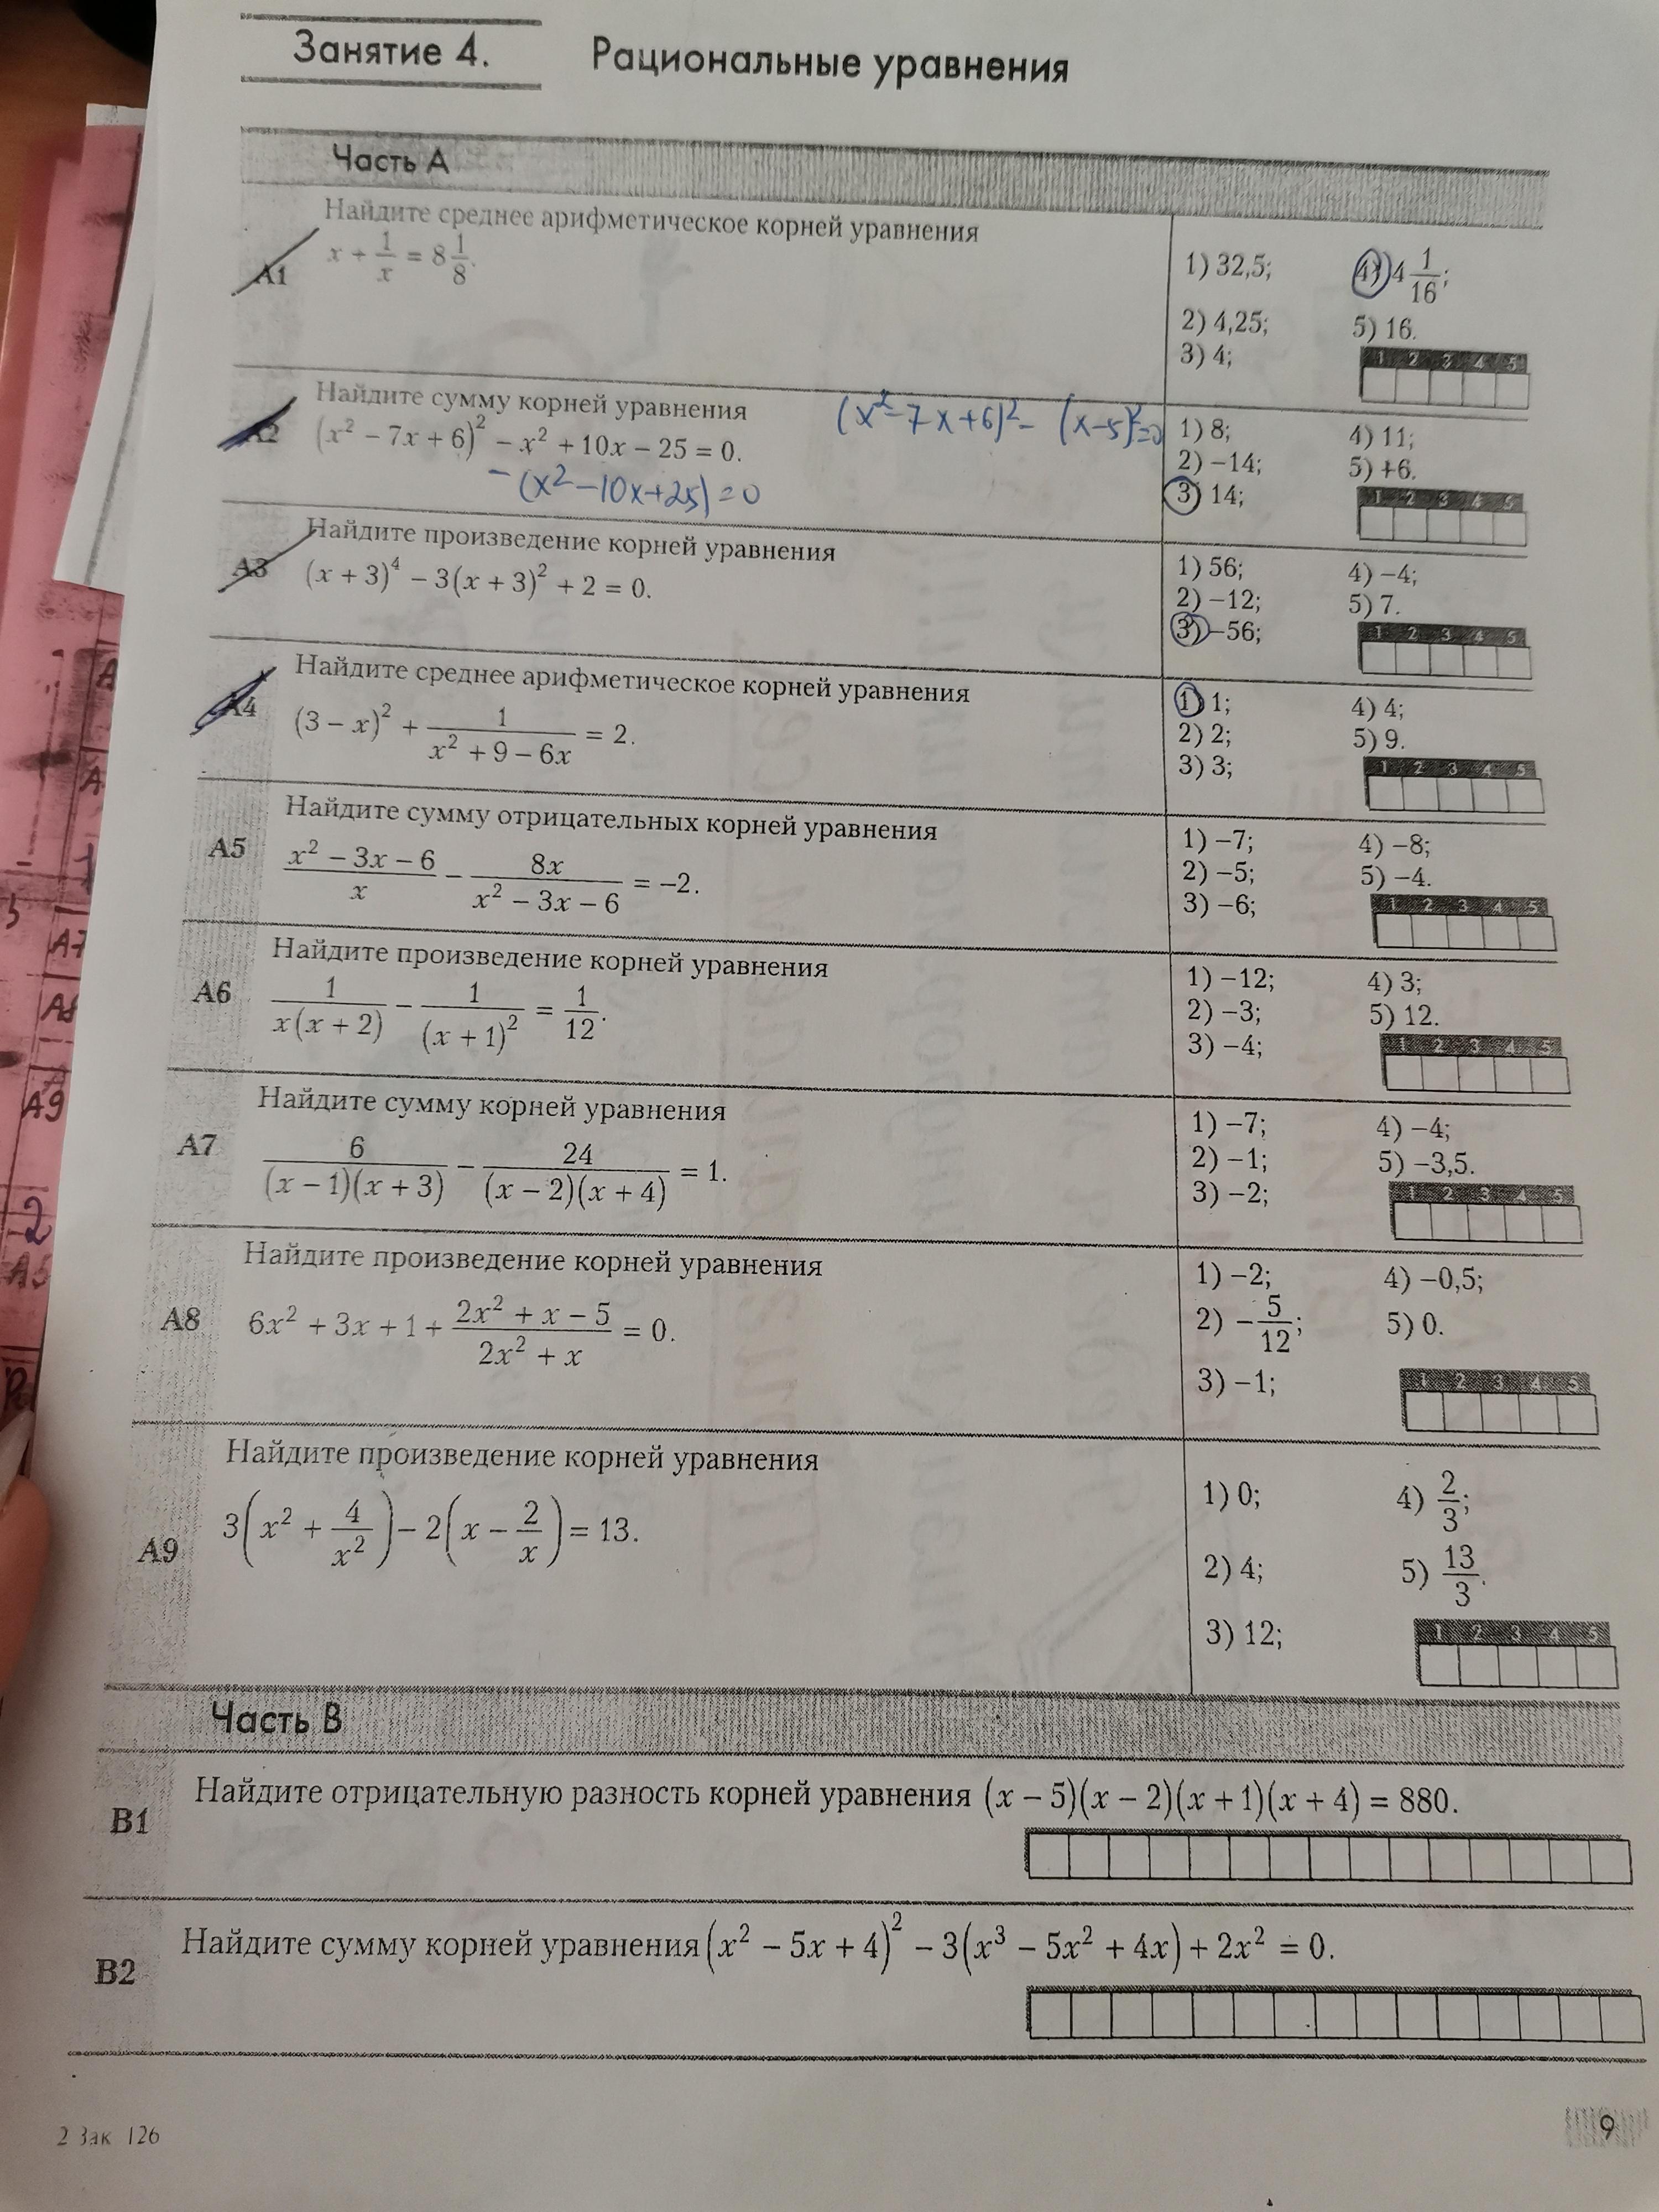 Занятие 4. Рациональные уравнения
Часть А
Найдите среднее арифметическое корней уравнения
А1 x + 1/x = 8 1/8.
1) 32,5; 4) 4 1/16;
2) 4,25; 5) 16.
3) 4;
1 2 3 4 5
Найдите сумму корней уравнения
А2 (x² − 7x + 6)² − x² + 10x − 25 = 0.
(x² − 7x + 6)² − (x−5)² = 0
− (x² − 10x + 25) = 0
1) 8; 4) 11;
2) −14; 5) +6.
3) 14;
1 2 3 4 5
Найдите произведение корней уравнения
А3 (x + 3)⁴ − 3(x + 3)² + 2 = 0.
1) 56; 4) −4;
2) −12; 5) 7.
3) −56;
1 2 3 4 5
Найдите среднее арифметическое корней уравнения
А4 (3 − x)² + 1/(x² + 9 − 6x) = 2.
1) 1; 4) 4;
2) 2; 5) 9.
3) 3;
1 2 3 4 5
Найдите сумму отрицательных корней уравнения
А5 (x² − 3x − 6)/x − 8x/(x² − 3x − 6) = −2.
1) −7; 4) −8;
2) −5; 5) −4.
3) −6;
1 2 3 4 5
Найдите произведение корней уравнения
А6 1/(x(x + 2)) − 1/(x + 1)² = 1/12.
1) −12; 4) 3;
2) −3; 5) 12.
3) −4;
1 2 3 4 5
Найдите сумму корней уравнения
А7 6/((x − 1)(x + 3)) − 24/((x − 2)(x + 4)) = 1.
1) −7; 4) −4;
2) −1; 5) −3,5.
3) −2;
1 2 3 4 5
Найдите произведение корней уравнения
А8 6x² + 3x + 1 + (2x² + x − 5)/(2x² + x) = 0.
1) −2; 4) −0,5;
2) −5/12; 5) 0.
3) −1;
1 2 3 4 5
Найдите произведение корней уравнения
А9 3(x² + 4/x²) − 2(x − 2/x) = 13.
1) 0; 4) 2/3;
2) 4; 5) 13/3.
3) 12;
1 2 3 4 5
Часть В
В1 Найдите отрицательную разность корней уравнения (x − 5)(x − 2)(x + 1)(x + 4) = 880.
В2 Найдите сумму корней уравнения (x² − 5x + 4)² − 3(x³ − 5x² + 4x) + 2x² = 0.
2 Зак 126
9
А7
А9
2